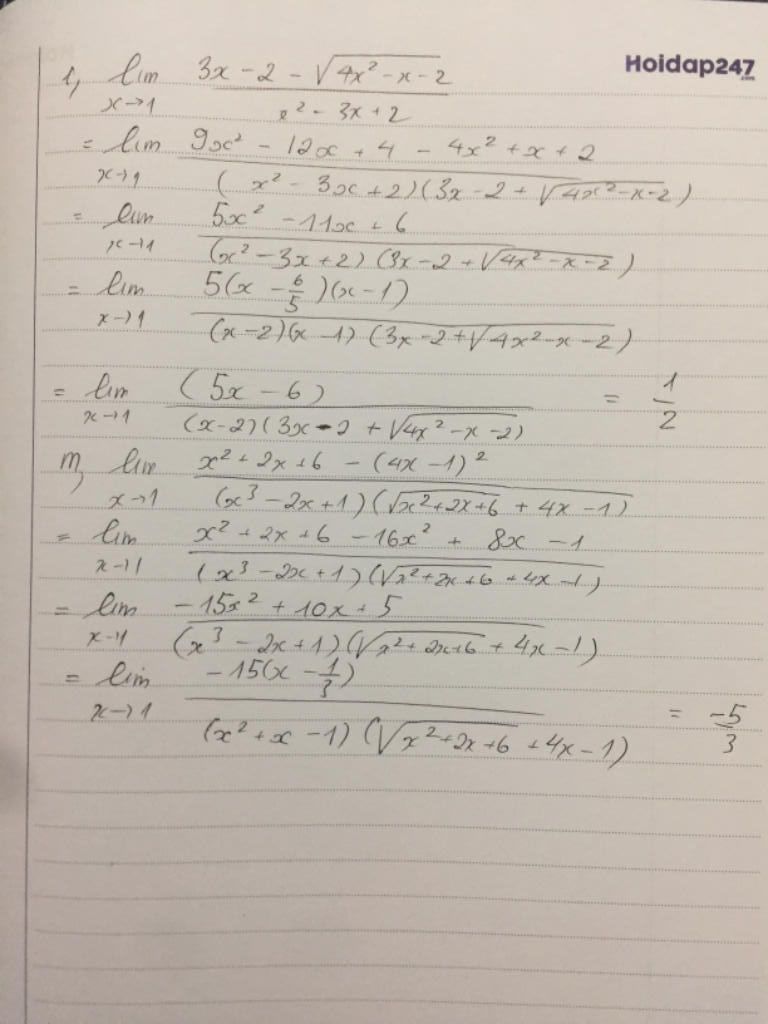 Hoidap247
.com
l, lim 3x - 2 - √(4x² - x - 2)
x→1 x² - 3x + 2
= lim 9x² - 12x + 4 - 4x² + x + 2
x→1 (x² - 3x + 2)(3x - 2 + √(4x² - x - 2))
= lim 5x² - 11x + 6
x→1 (x² - 3x + 2)(3x - 2 + √(4x² - x - 2))
= lim 5(x - 6/5)(x - 1)
x→1 (x - 2)(x - 1)(3x - 2 + √(4x² - x - 2))
= lim (5x - 6) = 1/2
x→1 (x - 2)(3x - 2 + √(4x² - x - 2))
m, lim x² + 2x + 6 - (4x - 1)²
x→1 (x³ - 2x + 1)(√(x² + 2x + 6) + 4x - 1)
= lim x² + 2x + 6 - 16x² + 8x - 1
x→1 (x³ - 2x + 1)(√(x² + 2x + 6) + 4x - 1)
= lim -15x² + 10x + 5
x→1 (x³ - 2x + 1)(√(x² + 2x + 6) + 4x - 1)
= lim -15(x - 1/3) = -5/3
x→1 (x² + x - 1)(√(x² + 2x + 6) + 4x - 1)